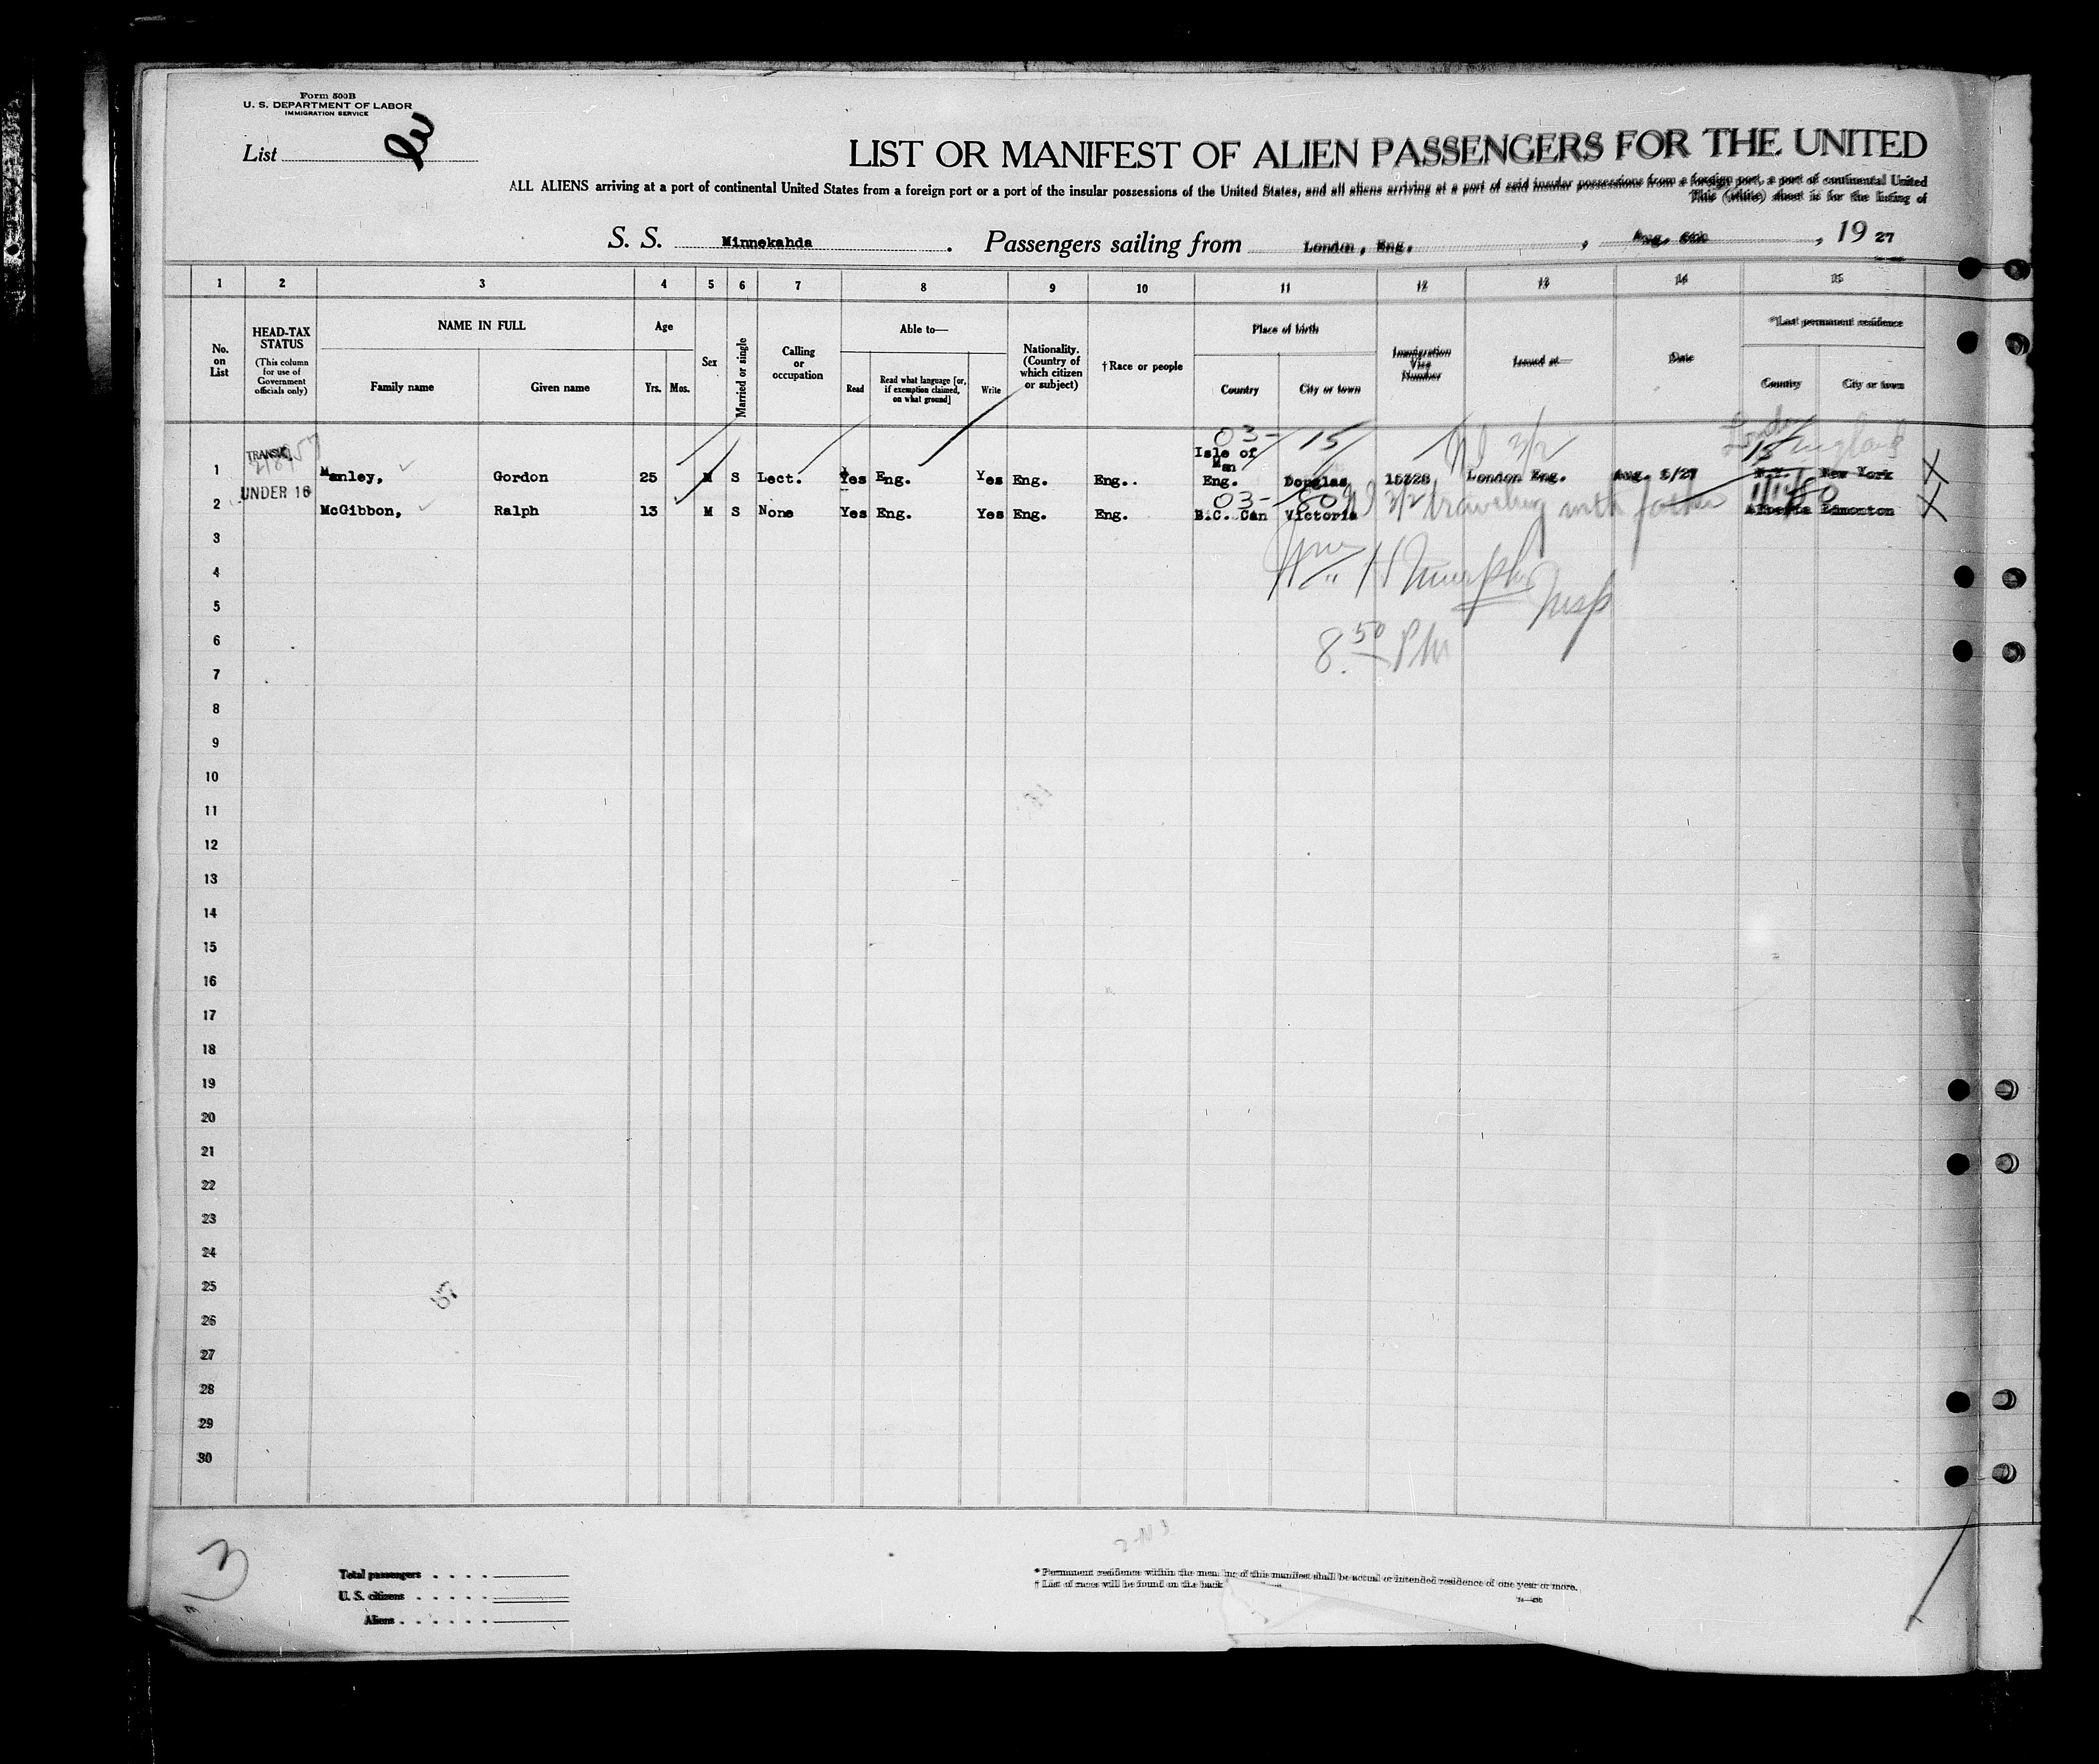 Form 500B
U. S. DEPARTMENT OF LABOR
IMMIGRATION SERVICE
List
LIST OR MANIFEST OF ALIEN PASSENGERS FOR THE UNITED
ALL ALIENS arriving at a port of continental United States from a foreign port or a port of the insular possessions of the United States, and all aliens arriving at a port of said insular possessions from a foreign port, a port of continental United
This (white) sheet is for the listing of
S. S. Minnekahda. Passengers sailing from London, Eng., Aug. , 19 27
1 2 3 4 5 6 7 8 9 10 11 12 13 14 15
No. on List
HEAD-TAX STATUS (This column for use of Government officials only)
NAME IN FULL
Family name
Given name
Age
Yrs. Mos.
Sex
Married or single
Calling or occupation
Able to—
Read
Read what language [or, if exemption claimed, on what ground]
Write
Nationality. (Country of which citizen or subject)
† Race or people
Place of birth
Country
City or town
Immigration Visa Number
Issued at—
Date
*Last permanent residence
Country
City or town
03- 15 London England
1 TRANSIT Manley, Gordon 25 M S Lect. Yes Eng. Yes Eng. Eng.. Isle of Man Eng. Douglas 15328 London Eng. Aug. 5/27 N.Y. New York X
UNDER 16
03- traveling with father
2 McGibbon, Ralph 13 M S None Yes Eng. Yes Eng. Eng. B.C. Can Victoria Alberta Edmonton X
3
4 Wm H Murphy Insp
5
6 8.50 PM
7
8
9
10
11
12
13
14
15
16
17
18
19
20
21
22
23
24
25
26
27
28
29
30
3
Total passengers . . . .
U. S. citizens . . . . .
Aliens . . . . . .
* Permanent residence within the meaning of this manifest shall be actual or intended residence of one year or more.
† List of races will be found on the back